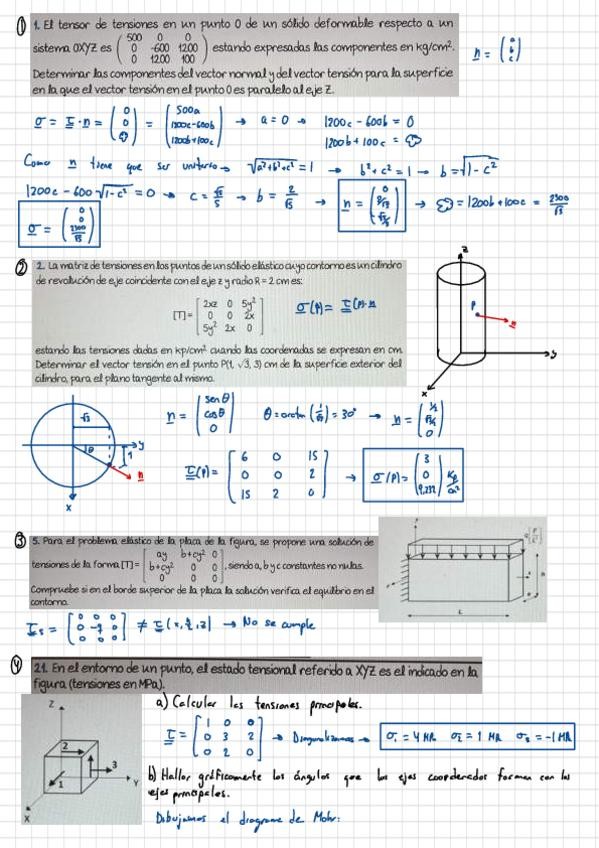 ① 1. El tensor de tensiones en un punto O de un sólido deformable respecto a un
sistema OXYZ es (500 0 0 / 0 -600 1200 / 0 1200 100) estando expresadas las componentes en kg/cm².
n = (a b c)
Determinar las componentes del vector normal y del vector tensión para la superficie
en la que el vector tensión en el punto O es paralelo al eje Z.
σ = Σ·n = (0 0 ) = (500a / 1200c-600b / 1200b+100c) → a = 0 → 1200c - 600b = 0
1200b + 100c =
Como n tiene que ser unitario → √a²+b²+c² = 1 → b²+c² = 1 → b = √1-c²
1200c - 600√1-c² = 0 → c = √5/5 → b = 2/√5 → n = → = 1200b + 100c = 2500/√5
σ =
② 2. La matriz de tensiones en los puntos de un sólido elástico cuyo contorno es un cilindro
de revolución de eje coincidente con el eje z y radio R = 2 cm es:
[T] = [2xz 0 5y² / 0 0 2x / 5y² 2x 0]
σ(P) = Σ(P)·n
estando las tensiones dadas en kp/cm² cuando las coordenadas se expresan en cm.
Determinar el vector tensión en el punto P(1, √3, 3) cm de la superficie exterior del
cilindro, para el plano tangente al mismo.
z
P
n
y
x
√3
θ
y
1
n
x
n = (sen θ / cos θ / 0) θ = arctan (1/√3) = 30° → n = (1/2 / √3/2 / 0)
Σ(P) = [6 0 15 / 0 0 2 / 15 2 0] → σ(P) = (3 / 0 / 9,232) kp/cm²
③ 5. Para el problema elástico de la placa de la figura, se propone una solución de
tensiones de la forma [T] = [ay b+cy² 0 / b+cy² 0 0 / 0 0 0], siendo a, b y c constantes no nulas.
Compruebe si en el borde superior de la placa la solución verifica el equilibrio en el
contorno.
L
Σs = [0 0 0 / 0 -q 0 / 0 0 0] ≠ → No se cumple
④ 21. En el entorno de un punto, el estado tensional referido a XYZ es el indicado en la
figura (tensiones en MPa).
Z
2
3
1
Y
X
a) Calcular las tensiones principales.
Σ = [1 0 0 / 0 3 2 / 0 2 0] → Diagonalizamos → σ₁ = 4 MPa σ₂ = 1 MPa σ₃ = -1 MPa
b) Hallar gráficamente los ángulos que los ejes coordenados forman con los
ejes principales.
Dibujamos el diagrama de Mohr: